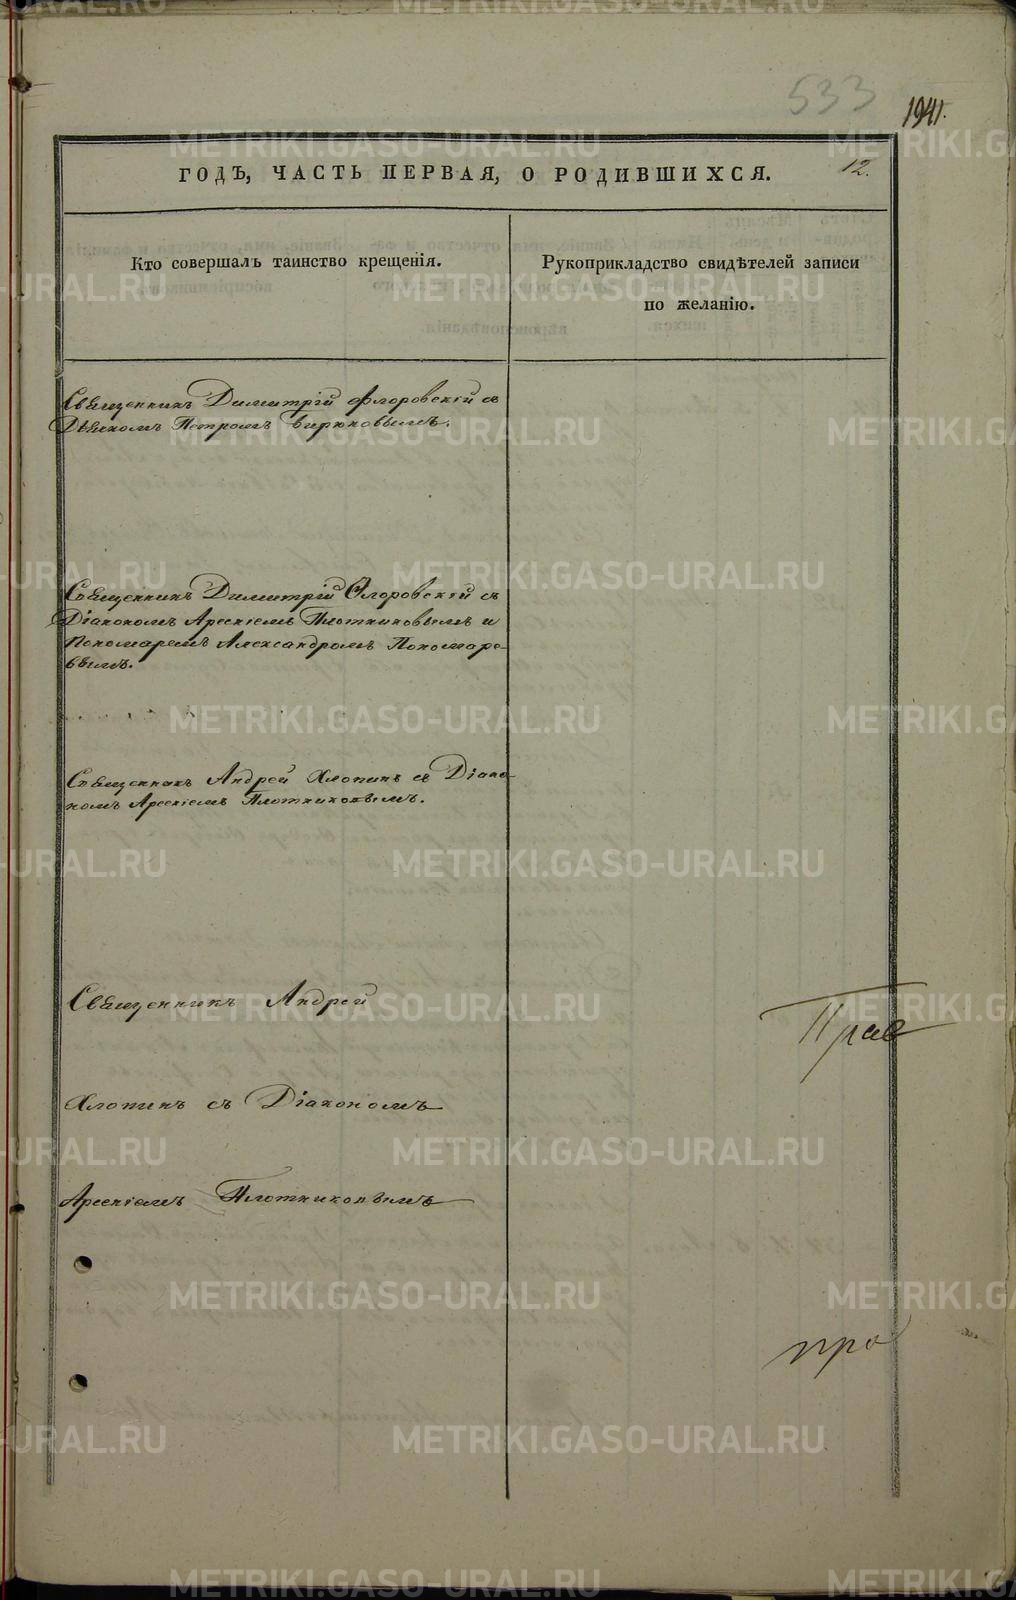 533
1941.
12.
ГОДЪ, ЧАСТЬ ПЕРВАЯ, О РОДИВШИХСЯ.
Кто совершалъ таинство крещенія.
Рукоприкладство свидѣтелей записи
по желанію.
Священникъ Димитрій Флоровскій съ
Дьякомъ Петромъ Бирюковымъ.
Священникъ Димитрій Флоровскій съ
Діакономъ Арсеніемъ Плотниковымъ и
Пономаремъ Александромъ Пономаре-
вымъ.
Священникъ Андрей Хлопинъ съ Діако-
номъ Арсеніемъ Плотниковымъ.
Священникъ Андрей
Хлопинъ съ Діакономъ
Арсеніемъ Плотниковымъ
Прав
про
METRIKI.GASO-URAL.RU